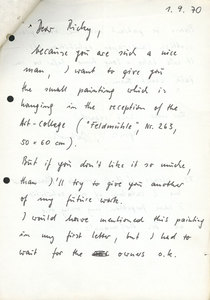 1.9.70
Dear Ricky,
because you are such a nice
man, I want to give you
the small painting which is
hanging in the reception of the
Art-College ("Feldmühle", Nr. 263,
50 x 60 cm).
But if you don't like it so much,
than I'll try to give you another
of my future work.
I would have mentioned this painting
in my first letter, but I had to
wait for the owners o.k.